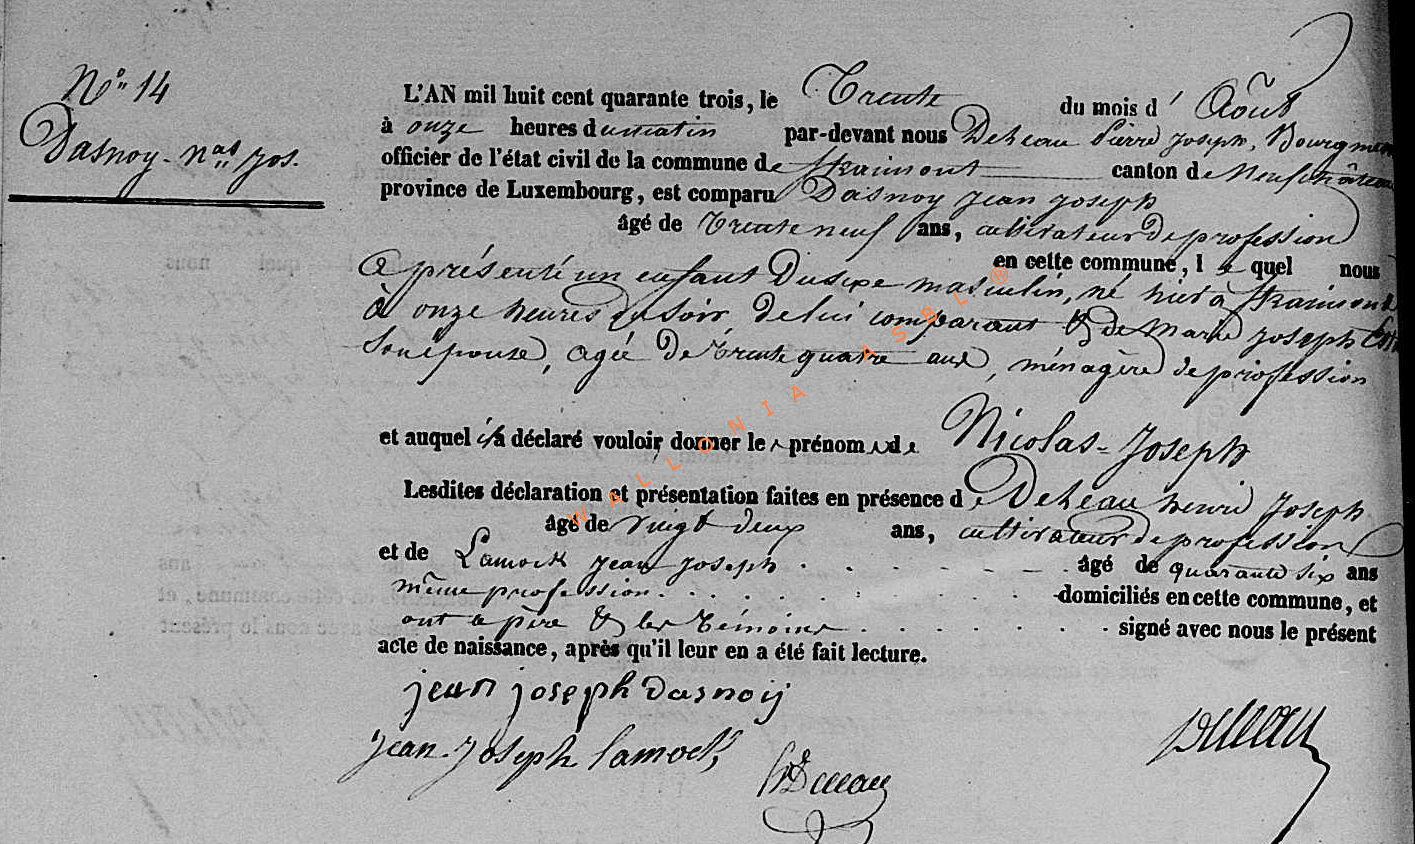 N° 14
Dasnoy - nas Jos.
L'AN mil huit cent quarante trois, le Trente du mois d' Août
à onze heures du matin par-devant nous Deheau Pierre Joseph, Bourgmen
officier de l'état civil de la commune de Straimont canton de Neufchâteau
province de Luxembourg, est comparu Dasnoy Jean Joseph
âgé de Trente neuf ans, cultivateur de profession
en cette commune, le quel nous
a présenté un enfant Du sexe masculin, né hier à Straimont
à onze heures du soir de lui comparant & de Marie Joseph
Son épouse, agée De Trente quatre ans, ménagère de profession
et auquel il a déclaré vouloir donner les prénoms de Nicolas-Joseph
Lesdites déclaration et présentation faites en présence de Deheau henri Joseph
âgé de vingt deux ans, cultivateur de profession
et de Lamock Jean Joseph . . . . . . âgé de quarante six ans
même profession . . . . . . domiciliés en cette commune, et
ont le père & les Témoins . . . . . . signé avec nous le présent
acte de naissance, après qu'il leur en a été fait lecture.
jean joseph dasnoij
Jean-Joseph lamock
Deheau
WALLONIA ASBL ®